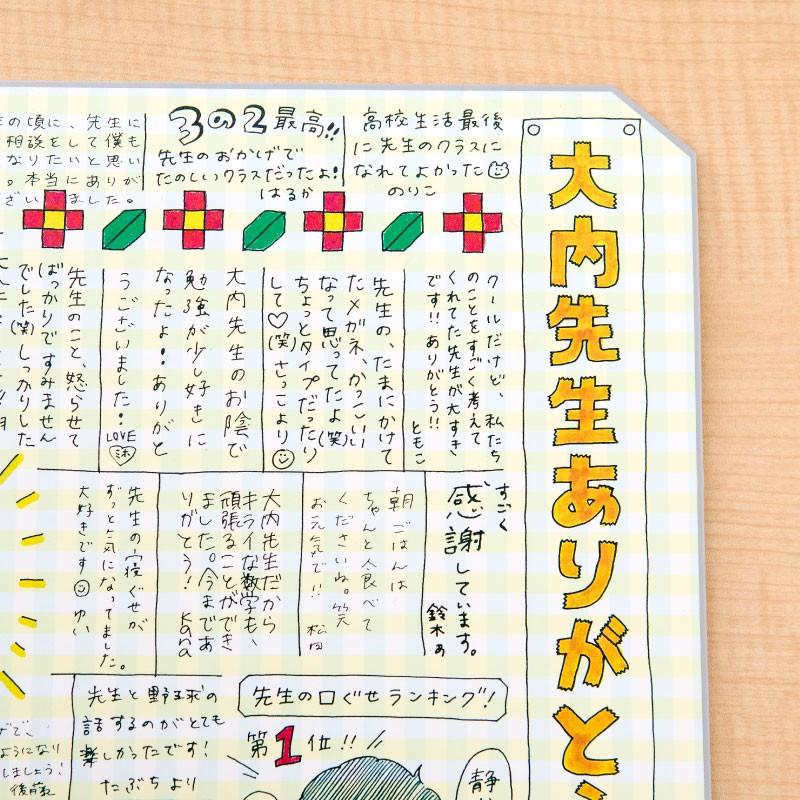 大内先生ありがと
の頃に、先生に
相談をして僕も
なりたいと思い
。本当にありが
ました。
3の2最高!!
先生のおかげで
たのしいクラスだったよ!
はるか
高校生活最後
に先生のクラスに
なれてよかった
のりこ
クールだけど、私たち
のことをすごく考えて
くれてた先生が大すき
です!!ありがとう!!
ともこ
先生の、たまにかけて
たメガネ、かっこいい
なって思ってたよ(笑)
ちょっとタイプだったり
して♡(笑)さっこより☺
大内先生のお陰で
勉強が少し好きに
なったよ!ありがと
うございました!
LOVE
先生のこと、怒らせて
ばっかりですみません
でした(笑)しっかりした
すごく
感謝しています。
鈴木
朝ごはんは
ちゃんと食べて
くださいね。笑
お元気で!!
松田
大内先生だから
キライな数学も、
頑張ることができ
ました。今まであ
りがとう!
Kana
先生の寝ぐせが
ずっと気になってました。
大好きです☺ゆい
先生の口ぐせランキング!
第1位!!
静か
先生と野球の
話するのがとても
楽しかったです!
たぶちより
ようになり
しましょう!
後藤